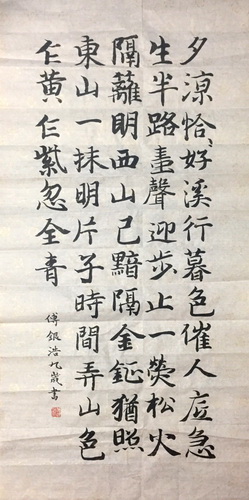 夕涼恰〻好溪行暮色催人底急
生半路蛩聲迎步止一熒松火
隔籬明西山已黯隔金鉦猶照
東山一抹明片子時間弄山色
乍黃乍紫忽全青
傅銀浩九歲書